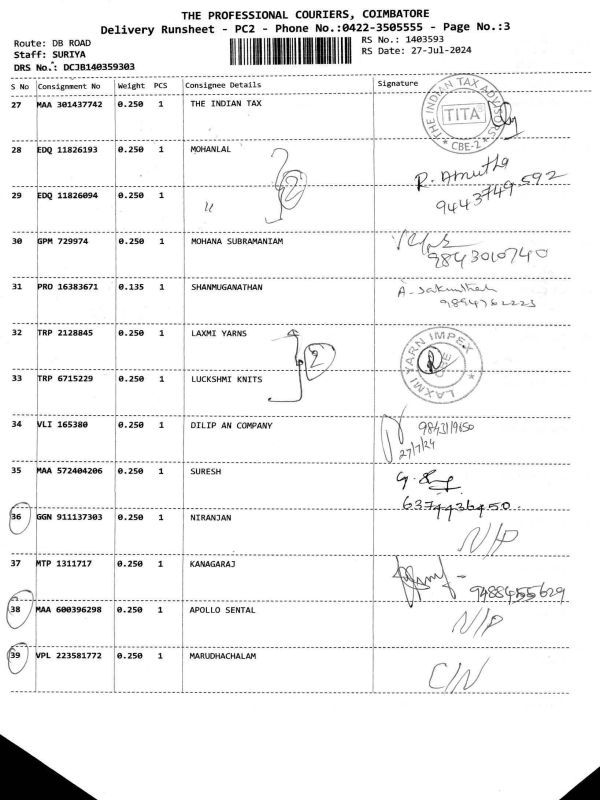 THE PROFESSIONAL COURIERS, COIMBATORE
Delivery Runsheet - PC2 - Phone No.:0422-3505555 - Page No.:3
Route: DB ROAD
Staff: SURIYA
DRS No.: DCJB140359303
RS No.: 1403593
RS Date: 27-Jul-2024
S No Consignment No Weight PCS Consignee Details Signature
27 MAA 301437742 0.250 1 THE INDIAN TAX
THE INDIAN TAX ADVISORS
TITA
* CBE-2 *
28 EDQ 11826193 0.250 1 MOHANLAL
2
R. Amutha
9443749592
29 EDQ 11826094 0.250 1 "
30 GPM 729974 0.250 1 MOHANA SUBRAMANIAM
9843010740
31 PRO 16383671 0.135 1 SHANMUGANATHAN
A. Sakunthala
9894762223
32 TRP 2128845 0.250 1 LAXMI YARNS
2
LAXMI YARN IMPEX
33 TRP 6715229 0.250 1 LUCKSHMI KNITS
34 VLI 165380 0.250 1 DILIP AN COMPANY
9843119650
27/7/24
35 MAA 572404206 0.250 1 SURESH
6374436450
36 GGN 911137303 0.250 1 NIRANJAN N/P
37 MTP 1311717 0.250 1 KANAGARAJ
9488455629
38 MAA 600396298 0.250 1 APOLLO SENTAL N/P
39 VPL 223581772 0.250 1 MARUDHACHALAM C/N